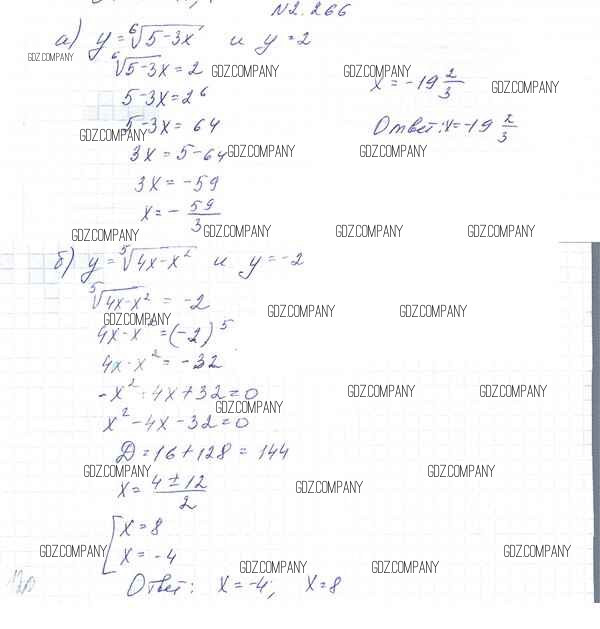 N2.266
а) y = ⁶√(5-3x) и y = 2
GDZ.COMPANY
⁶√(5-3x) = 2
GDZ.COMPANY
GDZ.COMPANY
x = -19 2/3
GDZ.COMPANY
5-3x = 2⁶
5-3x = 64
GDZ.COMPANY
Ответ: x = -19 2/3
3x = 5-64
GDZ.COMPANY
GDZ.COMPANY
3x = -59
x = - 59/3
GDZ.COMPANY
GDZ.COMPANY
GDZ.COMPANY
GDZ.COMPANY
б) y = ⁵√(4x-x²) и y = -2
⁵√(4x-x²) = -2
GDZ.COMPANY
GDZ.COMPANY
GDZ.COMPANY
4x-x² = (-2)⁵
4x-x² = -32
-x²+4x+32=0
GDZ.COMPANY
GDZ.COMPANY
GDZ.COMPANY
x²-4x-32=0
D = 16+128 = 144
GDZ.COMPANY
GDZ.COMPANY
x = (4±12)/2
GDZ.COMPANY
[x = 8
x = -4
GDZ.COMPANY
GDZ.COMPANY
GDZ.COMPANY
GDZ.COMPANY
Ответ: x = -4; x = 8